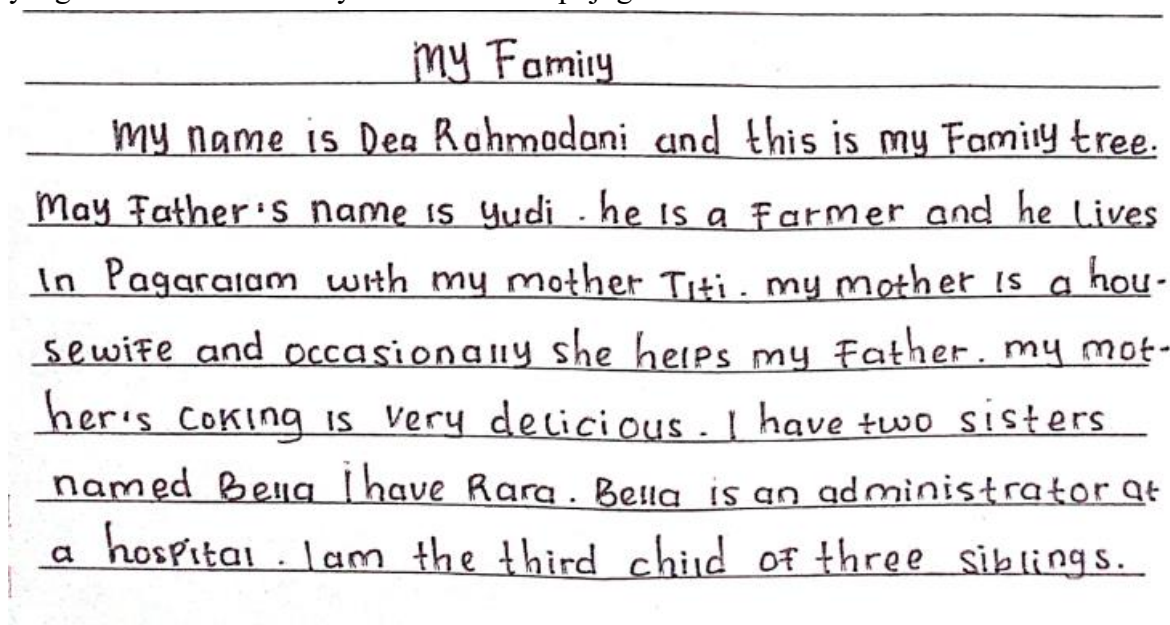 My Family
My name is Dea Rahmadani and this is my Family tree.
May Father's name is yudi . he is a Farmer and he Lives
In Pagaralam with my mother Titi . my mother is a hou-
sewife and occasionally she helps my Father. my mot-
her's Coking is very delicious . I have two sisters
named Bella I have Rara . Bella is an administrator at
a hospital . I am the third child of three siblings.